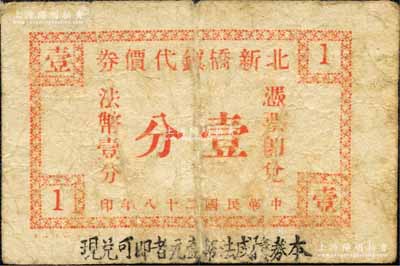 上海陽明拍賣
壹 1
北新橋鎮代價券
憑票即兌
壹分
法幣壹分
1 壹
中華民國二十八年印
本券積成法幣壹元者即可兌現